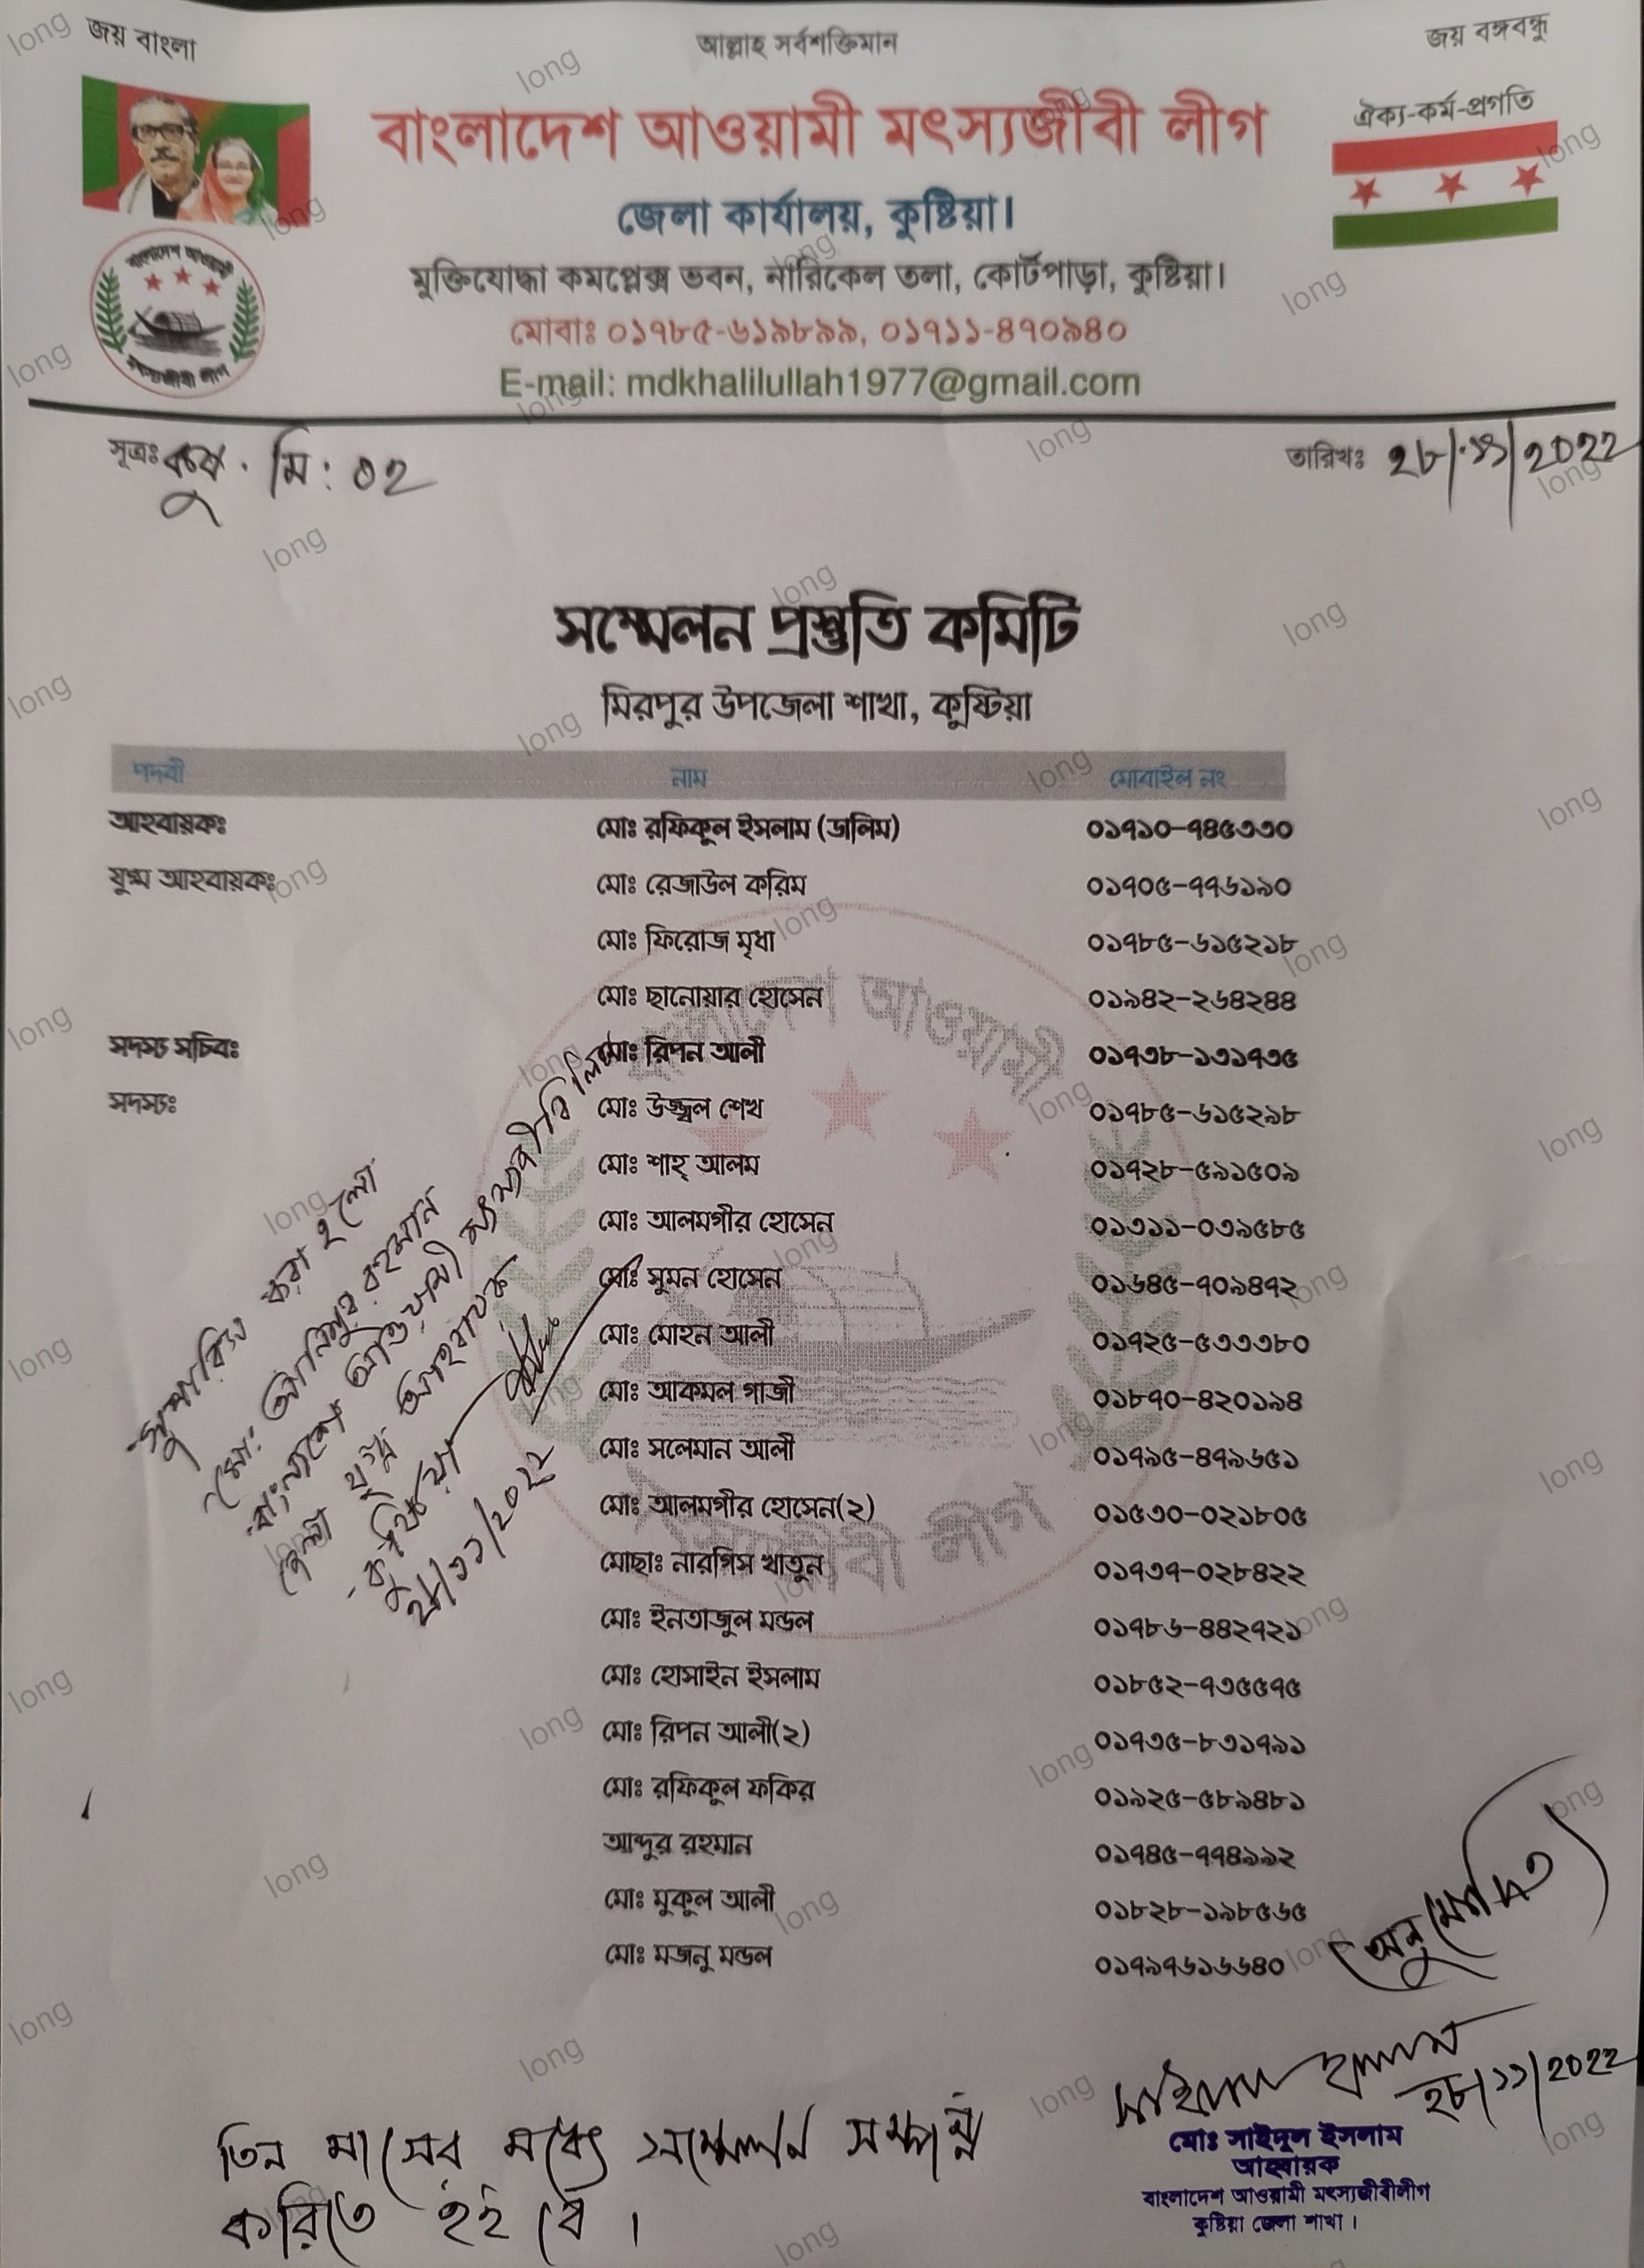 জয় বাংলা
আল্লাহ সর্বশক্তিমান
জয় বঙ্গবন্ধু
বাংলাদেশ আওয়ামী মৎস্যজীবী লীগ
ঐক্য-কর্ম-প্রগতি
জেলা কার্যালয়, কুষ্টিয়া।
মুক্তিযোদ্ধা কমপ্লেক্স ভবন, নারিকেল তলা, কোর্টপাড়া, কুষ্টিয়া।
মোবাঃ ০১৭৮৫-৬১৯৮৯৯, ০১৭১১-৪৭০৯৪০
E-mail: mdkhalilullah1977@gmail.com
বাংলাদেশ আওয়ামী
মৎস্যজীবী লীগ
সূত্রঃ মি: ০২
তারিখঃ ২৮/১১/2022
সম্মেলন প্রস্তুতি কমিটি
মিরপুর উপজেলা শাখা, কুষ্টিয়া
পদবী নাম মোবাইল নং
আহবায়কঃ মোঃ রফিকুল ইসলাম (ডালিম) ০১৭১০-৭৪৫৩৩০
যুগ্ম আহবায়কঃ মোঃ রেজাউল করিম ০১৭০৫-৭৭৬১৯০
মোঃ ফিরোজ মৃধা ০১৭৮৫-৬১৫২১৮
মোঃ ছানোয়ার হোসেন ০১৯৪২-২৬৪২৪৪
সদস্য সচিবঃ মোঃ রিপন আলী ০১৭৩৮-১৩১৭৩৫
সদস্যঃ মোঃ উজ্জ্বল শেখ ০১৭৮৫-৬১৫২৯৮
মোঃ শাহ্ আলম ০১৭২৮-৫৯১৫০৯
মোঃ আলমগীর হোসেন ০১৩১১-০৩৯৫৮৫
মোঃ সুমন হোসেন ০১৬৪৫-৭০৯৪৭২
মোঃ মোহন আলী ০১৭২৫-৫৩৩৩৮০
মোঃ আকমল গাজী ০১৮৭০-৪২০১৯৪
মোঃ সলেমান আলী ০১৭৯৫-৪৭৯৬৫১
মোঃ আলমগীর হোসেন(২) ০১৫৩০-০২১৮০৫
মোছাঃ নারগিস খাতুন ০১৭৩৭-০২৮৪২২
মোঃ ইনতাজুল মন্ডল ০১৭৮৬-৪৪২৭২১
মোঃ হোসাইন ইসলাম ০১৮৫২-৭৩৫৫৭৫
মোঃ রিপন আলী(২) ০১৭৩৫-৮৩১৭৯১
মোঃ রফিকুল ফকির ০১৯২৫-৫৮৯৪৮১
আব্দুর রহমান ০১৭৪৫-৭৭৪৯৯২
মোঃ মুকুল আলী ০১৮২৮-১৯৮৫৬৫
মোঃ মজনু মন্ডল ০১৭৯৭৬১৬৬৪০
সুপারিশ করা হলো
মো: আনিসুর রহমান
আওয়ামী মৎস্যজীবি লীগ
জেলা যুগ্ম আহবায়ক
কুষ্টিয়া
২৮/১১/২০২২
অনুমোদিত
২৮/১১/2022
মোঃ সাইদুল ইসলাম
আহবায়ক
বাংলাদেশ আওয়ামী মৎস্যজীবীলীগ
কুষ্টিয়া জেলা শাখা।
তিন মাসের মধ্যে সম্মেলন সম্পন্ন
করিতে হইবে।